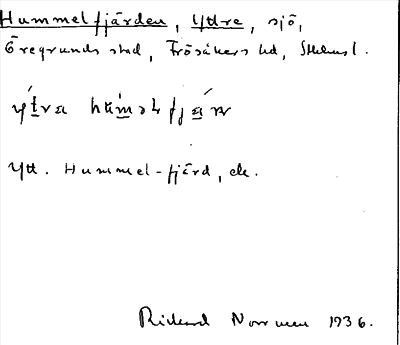 Hummelfjärden, Yttre, sjö,
Öregrunds stad, Frösåkers hd, Sthlms l.
Ytt. Hummel-fjärd, ek.
Rickard Norrman 1936.